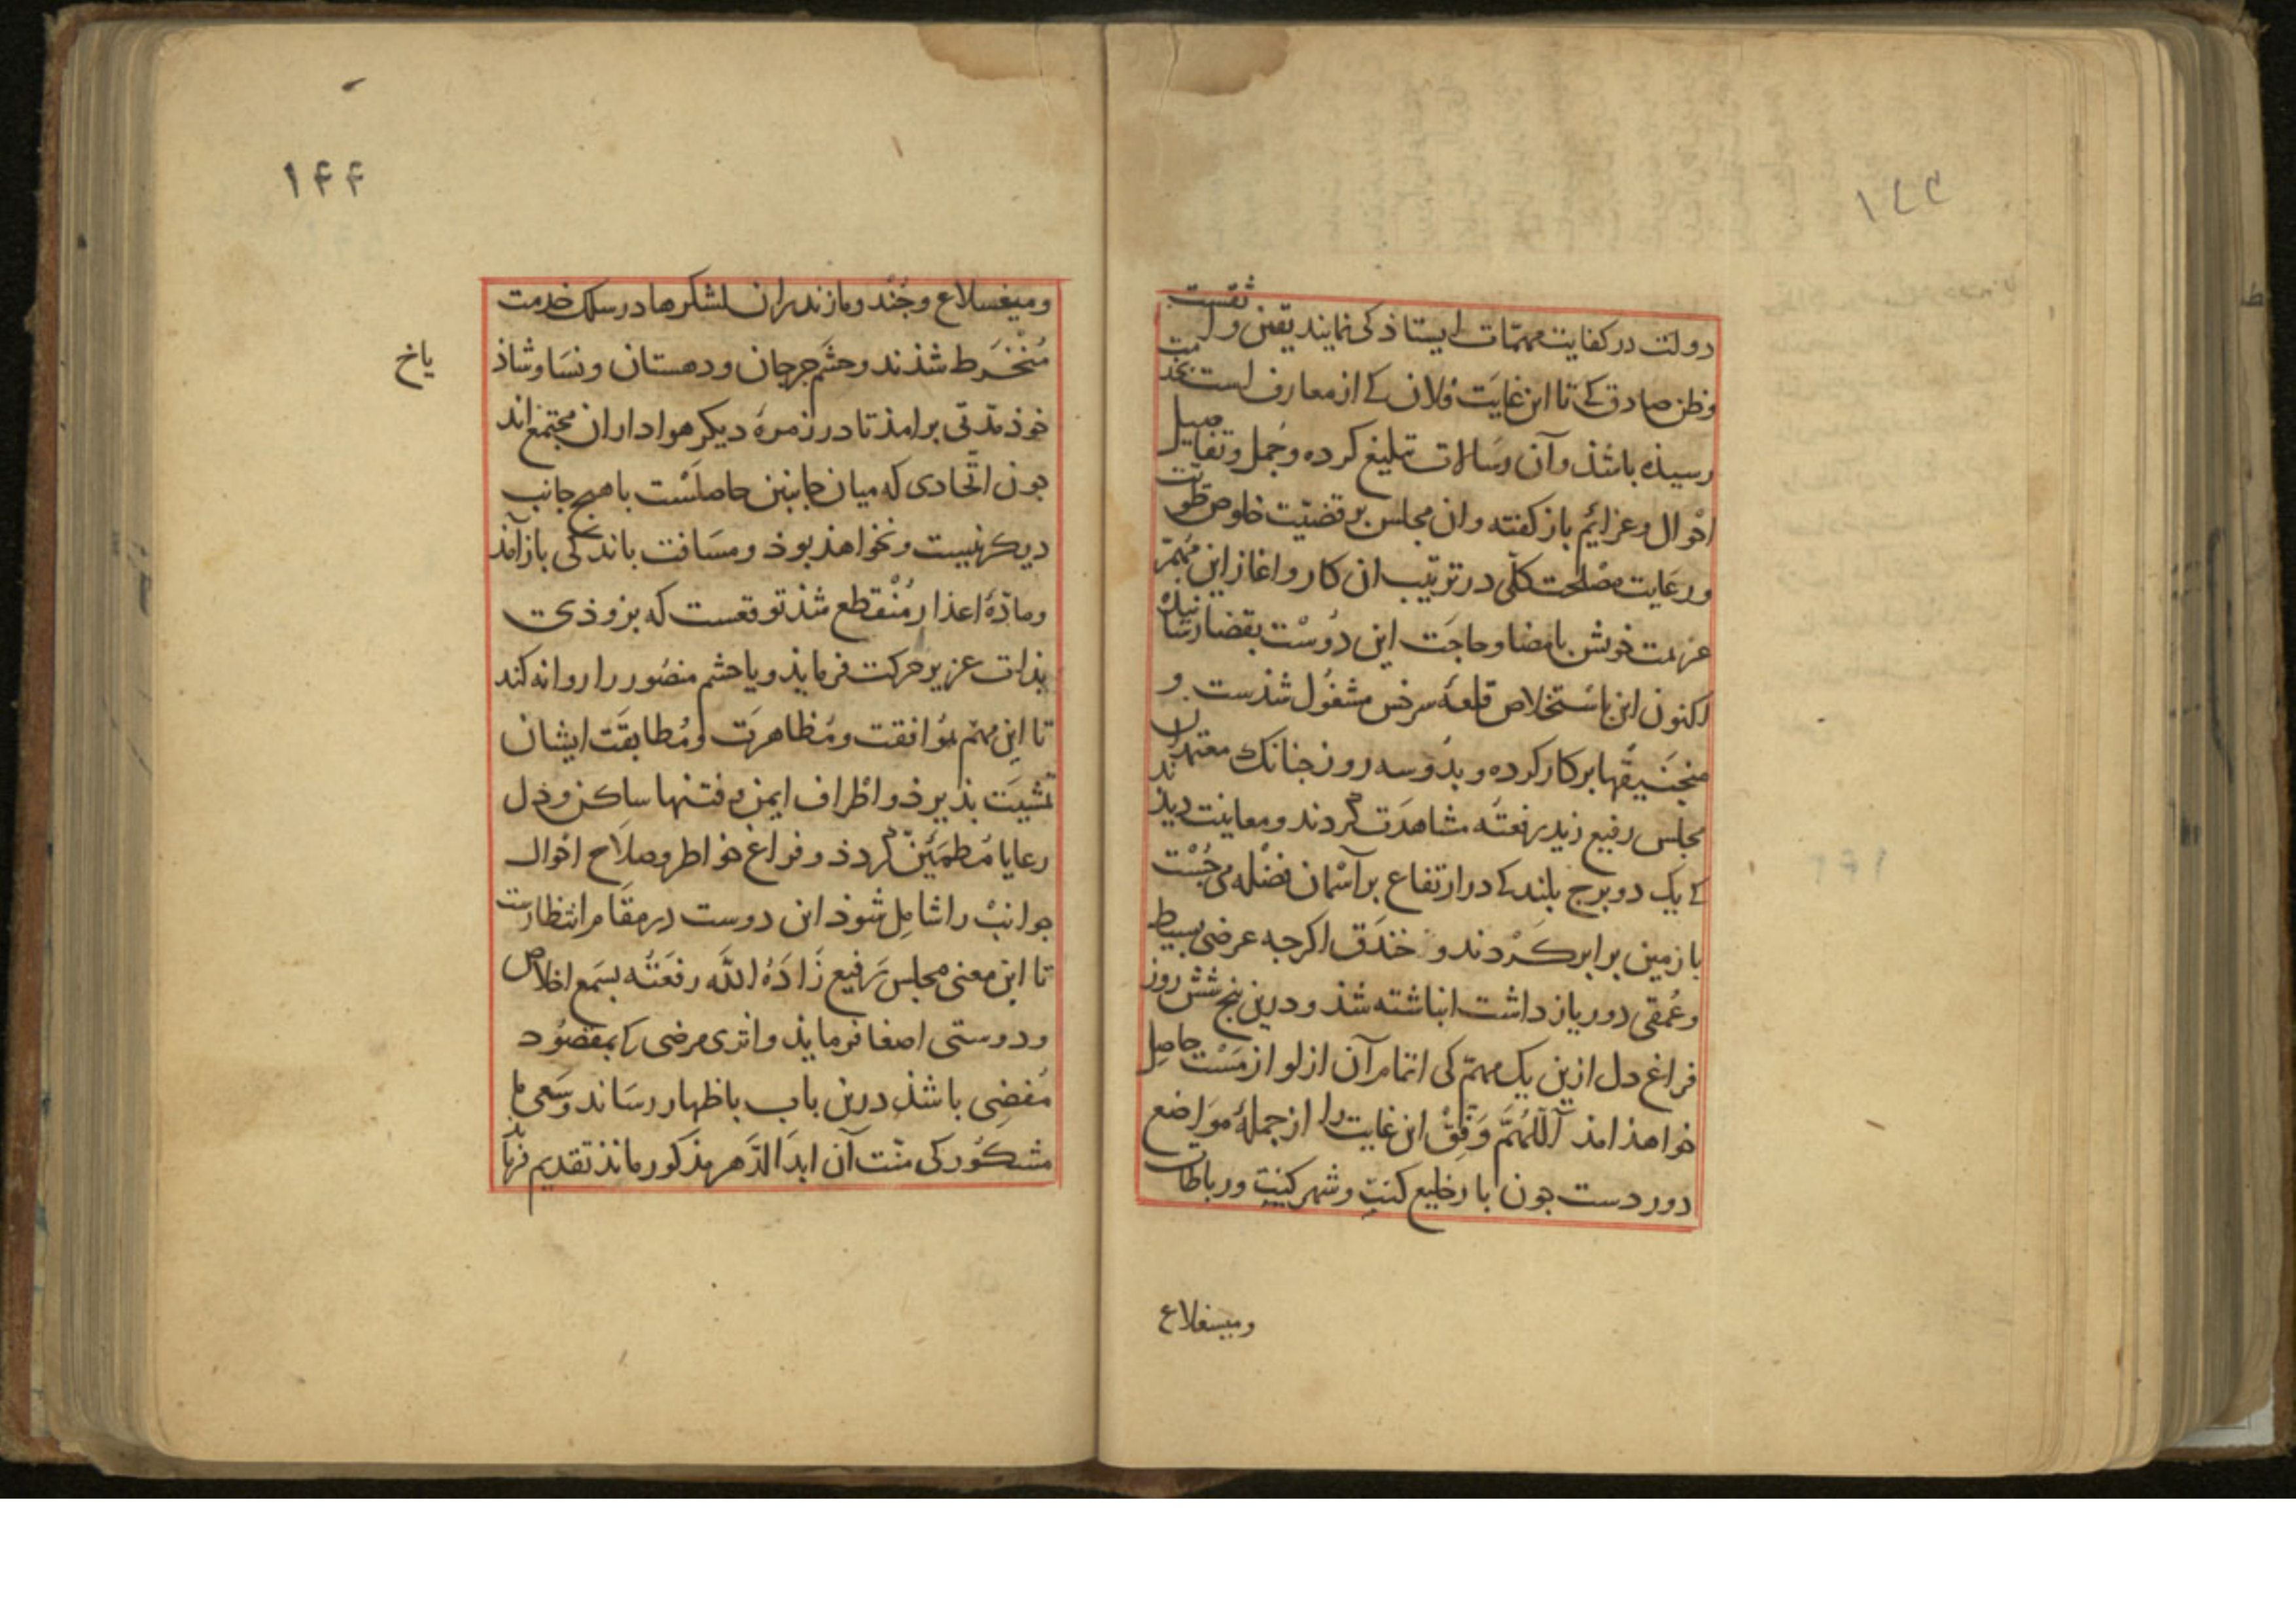 ١٤٣
دولت در کفایت مهمات ایستاذکی نمایند یقین و ثقست
وظن صادق کے تا این غایَت فلان کے از معارف است بخدمت
رسیذه باشذ و آن رسَالات تبلیغ کرده و جُمل و تفاصیل
احْوال و عزائم باز کفته وان مجلس بر قضیّت خلوص طویّت
و رعَایت مصْلحت کلّی در ترتیب ان کار و اغاز این مُهمّ
عزیمت خویش بامضا و حاجَت این دوُسْت بقضا رسَانیذه
اکنون این باسْتخلاص قلعهٔ سرخس مشغوُل شذست و
منجَنیقها بر کار کرده و بدُو سه روز جنانک معتمدان
مجلس رفیع زید رفعتُه مشاهدَت کردند و معاینت دیذند
کے یک دو برج بلند کے در ارتفاع بر آسْمان فضْله می جُسْت
با زمین برابر کَرْدند و خندَق اکرجه عرضی بسیط
و عُمقی دور یاز داشت انباشته شذ و درین پنج شش روز
فراغ دل ازین یک مهمّ کی اتمام آن از لوازمسْت حاصِل
خواهذ امذ اَللّهُمَّ وَفِّقْ این غایت را از جملهٔ موَاضع
دور دست جون بارخلیغ کنت و شهر کنت و رباطات
ومیسغلاع
١۴۴
ومیغسلاع و جُنْد و مازندران لشکرها در سلک خدمت
مُنْخَرط شذند و حشَم جرجان و دهستان و نسَا و شاذ
یاخ
خوذ مدّتی برامذ تا در زمرهٔ دیکر هواداران مجتمع اند
جون اتّحادی که میان جانبین حاصلَسْت با هیج جانب
دیکر نیست و نخواهذ بوذ و مسَافت باندکی باز آمذ
و مادّهٔ اعذار مُنْقطع شذ توقعست که بزوذی
بذات عزیز حرکت فرمایذ و یا حشم منصُور را روانه کند
تا این مهمّ بموُافقت و مُظاهرَت و مُطابقَت ایشان
تمشیَت بذیرذ و اطْراف ایمن و فتنها ساکن و دل
رعایا مُطمَئنّ کردذ و فراغ خواطر و صلَاح احْوال
جوانبْ را شامِل شوذ این دوست در مقَام انتظارست
تا این معنی مجلس رَفیع زَادَهُ اللّه رفعَتُه بسَمع اخلاص
و دوستی اصغا فرمایذ و اثری مرضی که بمقصُود
مُفضِی باشذ درین باب باظهار رسَاند و سَعی
مشکوُر کی منّت آن ابدَ الدَّهر مذکور مانذ تقدیم فرمایذ